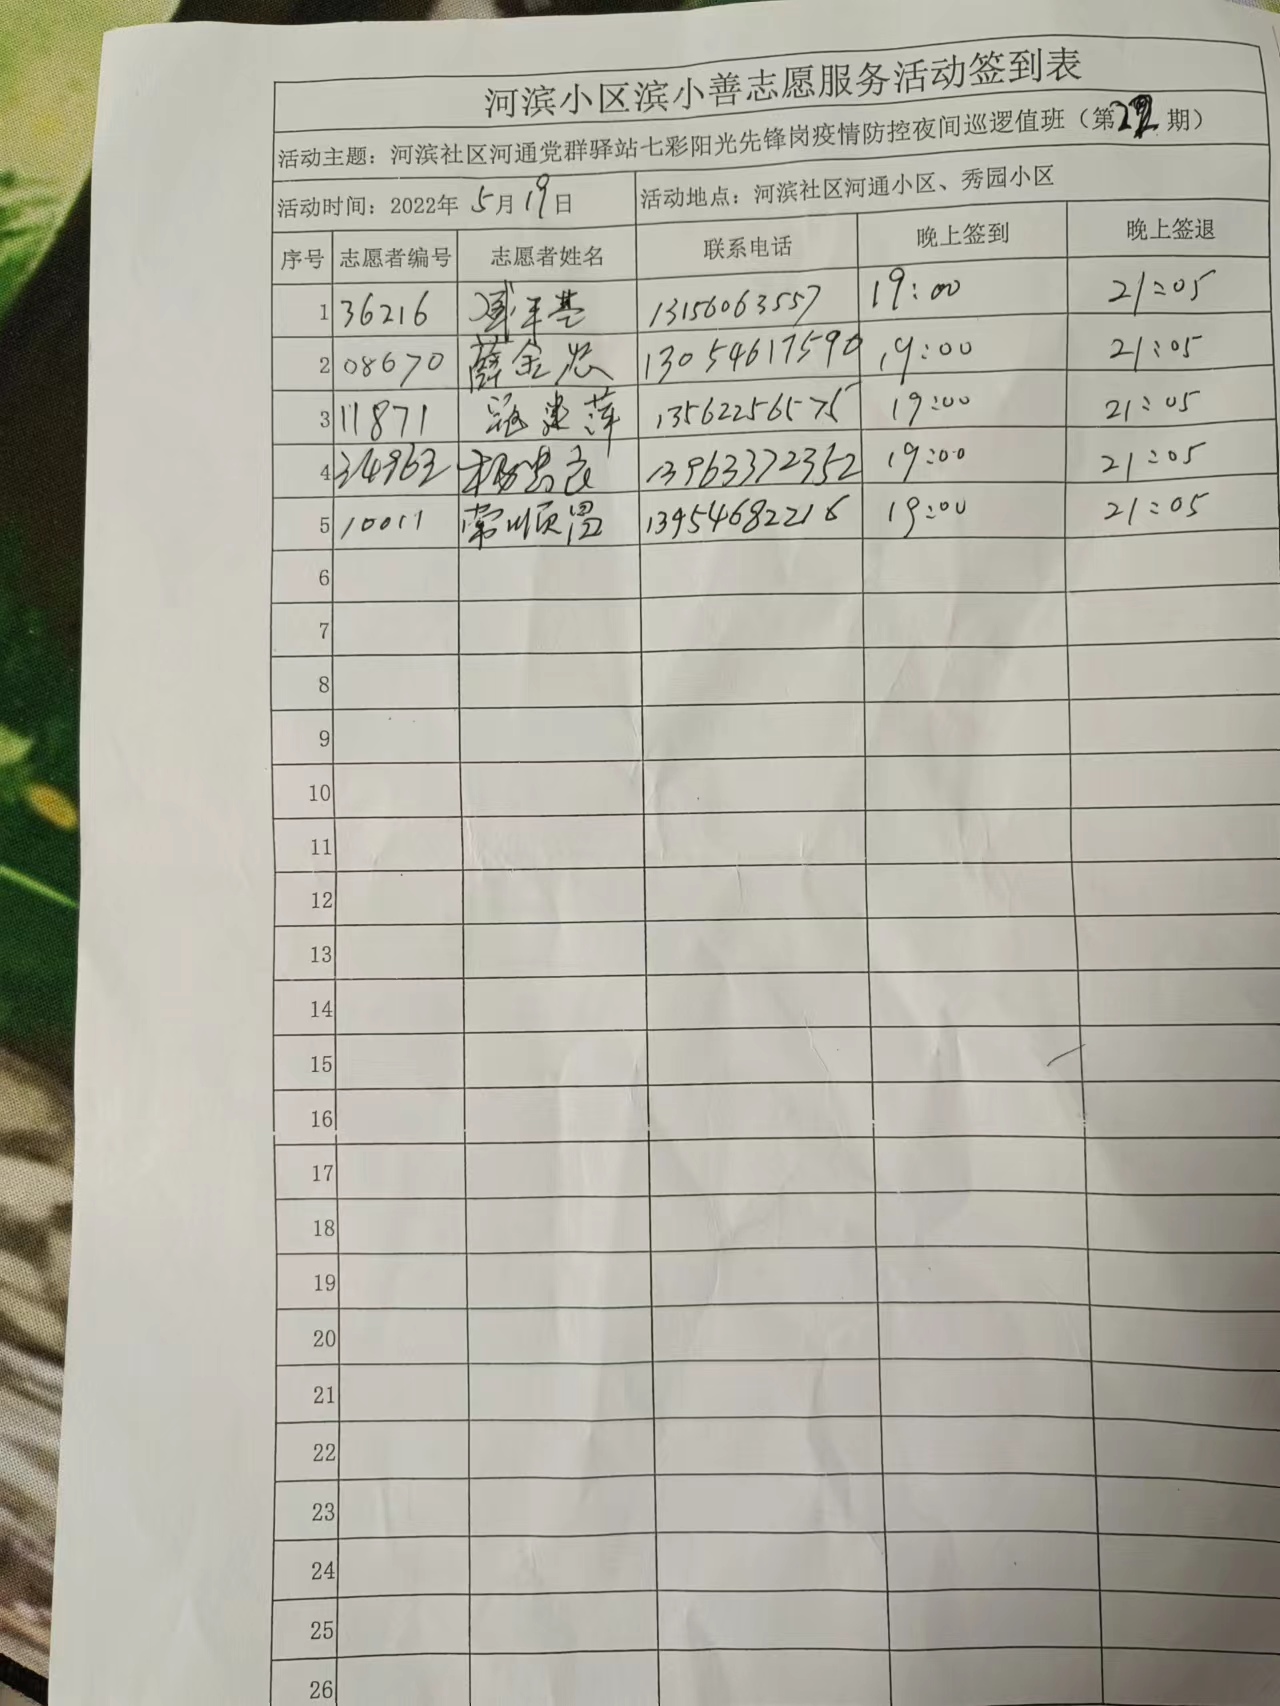 河滨小区滨小善志愿服务活动签到表
活动主题：河滨社区河通党群驿站七彩阳光先锋岗疫情防控夜间巡逻值班（第22期）
活动时间：2022年 5月19日 活动地点：河滨社区河通小区、秀园小区
序号 志愿者编号 志愿者姓名 联系电话 晚上签到 晚上签退
1 36216 13156063557 19:00 21:05
2 08670 薛金 13054617590 19:00 21:05
3 11871 萍 13562256575 19:00 21:05
4 34963 杨 13963372352 19:00 21:05
5 10011 常顺 13954682216 19:00 21:05
6
7
8
9
10
11
12
13
14
15
16
17
18
19
20
21
22
23
24
25
26